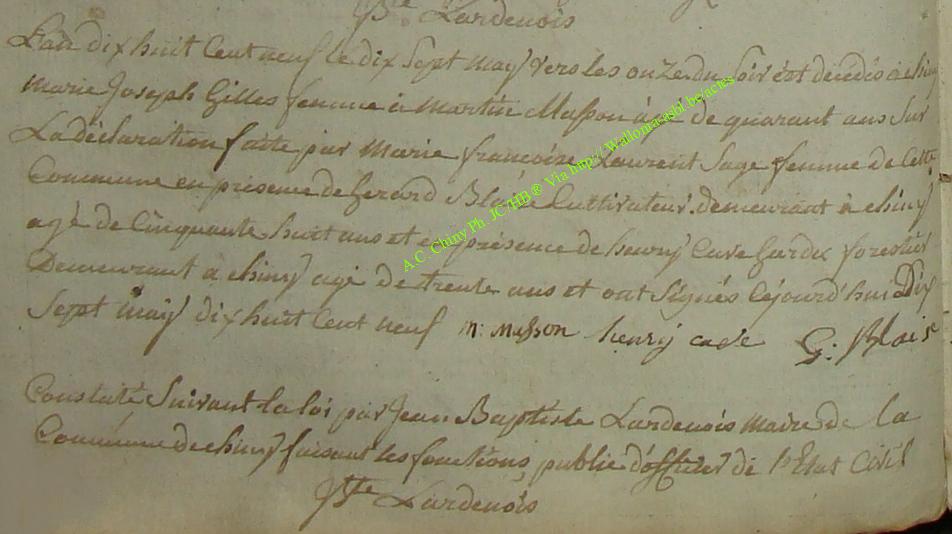 Jbte Lardenois
L'an dix huit Cent neuf le dix Sept may vers les onze du soir est decedés a chiny
Marie Joseph Gilles femme à Martin Masson agé de quarant ans Sur
La déclaration faite par Marie francoise Laurent Sage femme de Cette
Commune en présence de Gerard Blaise Cultivateur demeurant à chiny
agé de Cinquante huit ans et en présence de henry Cave Gardx forestier
Demeurant a chiny agé De trente ans et ont Signés Cejourd'hui Dix
Sept may dix huit Cent neuf m: masson henry cave G: Blaise
A.C. Chiny Ph. JC/HB® Via http://Wallonia-asbl.be/actes
Constaté Suivant la loi par Jean Baptiste Lardenois Maire de la
Commune de chiny faisant les fonctions public d'officier de l'Etat Civil
Jbte Lardenois